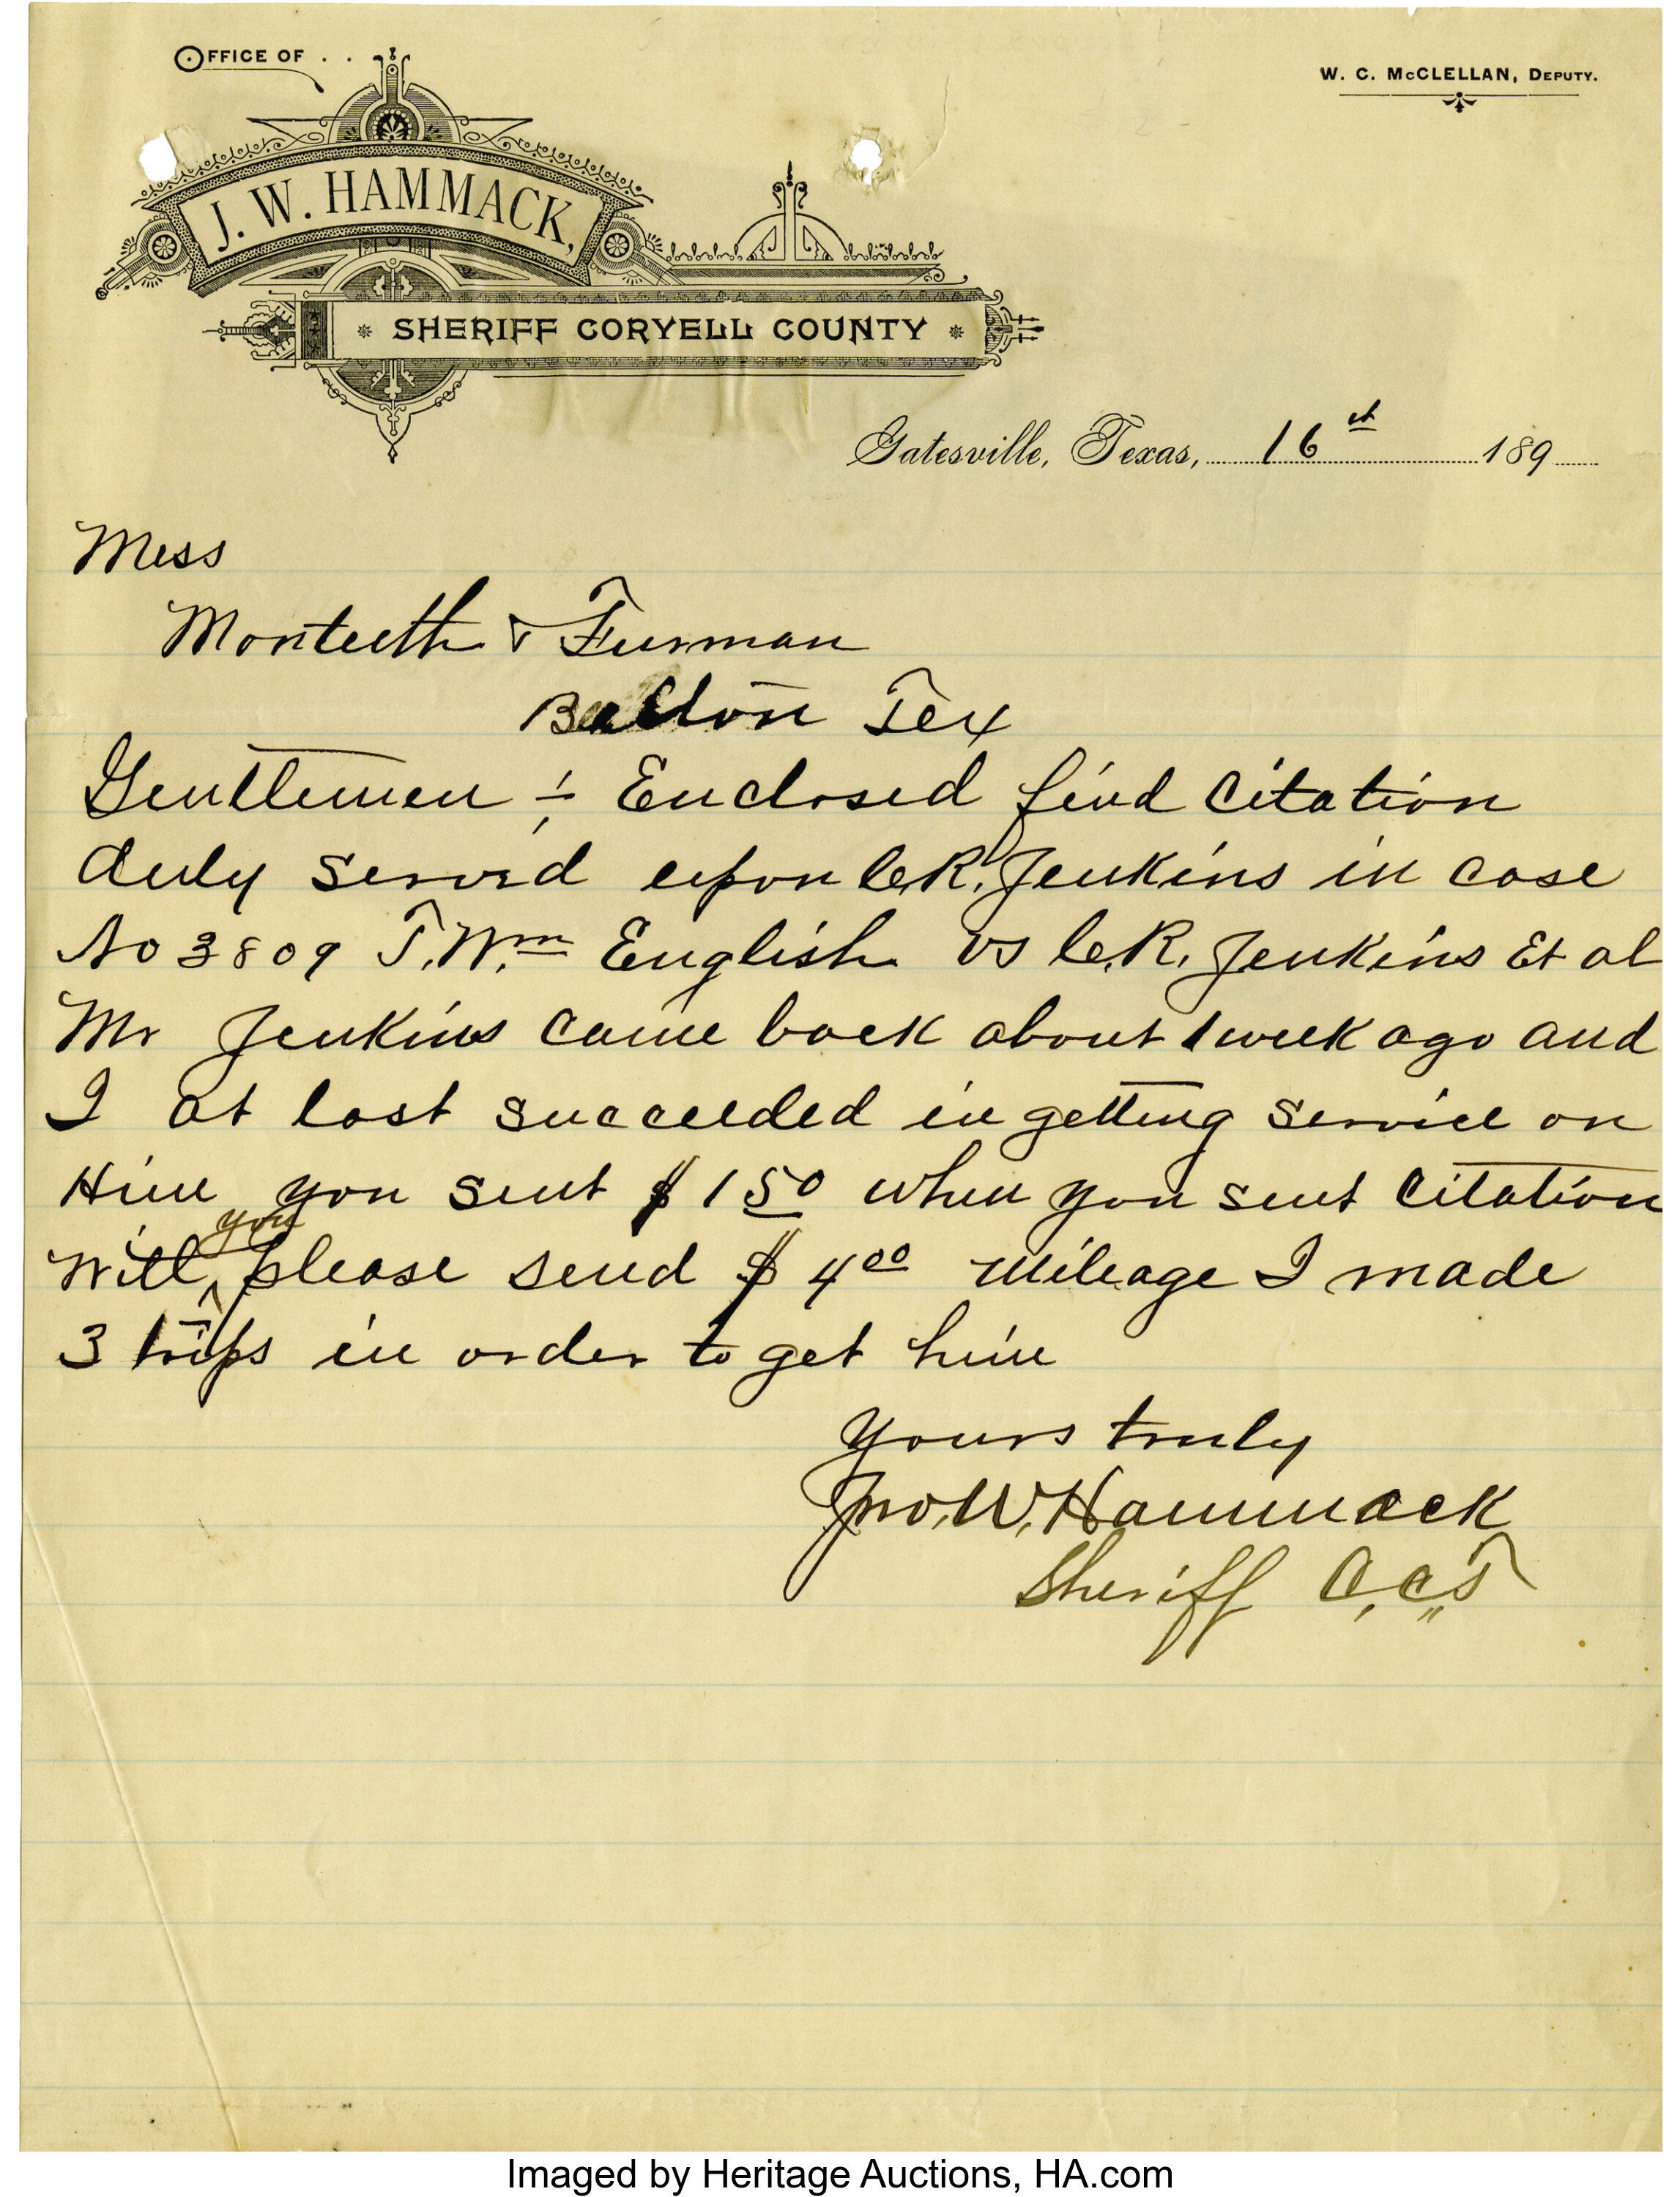 OFFICE OF . .
W. C. McCLELLAN, DEPUTY.
J. W. HAMMACK,
* SHERIFF CORYELL COUNTY *
Gatesville, Texas, 16 189
Mess
Monteith & Furman
Belton Tex
Gentlemen :- Enclosed find Citation
duly served upon C.R. Jenkins in case
No 3809 T. Wm English vs C.R. Jenkins Et al
Mr Jenkins came back about 1 week ago and
I at last succeeded in getting service on
Him you sent $1 50 when you sent Citation
you
Will, please send $ 4 00 mileage I made
3 trips in order to get him
Yours truly
Jno. W. Hammack
Sheriff C.C.T
Imaged by Heritage Auctions, HA.com